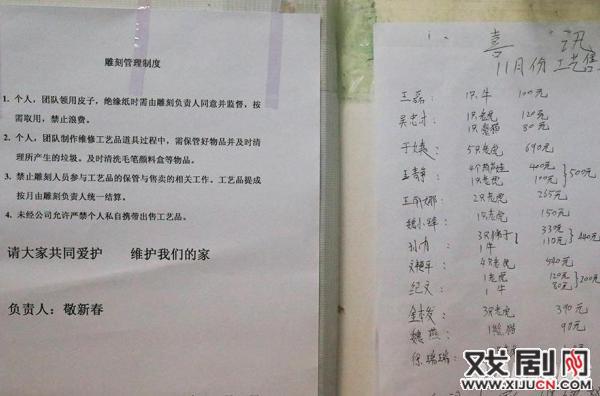 雕刻管理制度
1. 个人，团队领用皮子，绝缘纸时需由雕刻负责人同意并监督，按
需取用，禁止浪费。
2. 个人，团队制作维修工艺品道具过程中，需保管好物品并及时清
理所产生的垃圾。及时清洗毛笔颜料盒等物品。
3. 禁止雕刻人员参与工艺品的保管与售卖的相关工作。工艺品提成
按月由雕刻负责人统一结算。
4. 未经公司允许严禁个人私自携带出售工艺品。
请大家共同爱护 维护我们的家
负责人：敬新春
喜 讯
11月份工艺售
王磊： 1只牛 100元
1只老虎 120元
1只熊猫 80元
5只老虎 690元
400元
1只老虎 100元 500元
2只老虎 265元
1只老虎 150元
330元
1牛 110元 440元
4只老虎
1老虎 120元
纪文： 1牛 80元 200元
3只老虎 390元
魏燕： 1熊猫 90元
徐瑞瑞：
戏剧网
www.XIJUCN.com